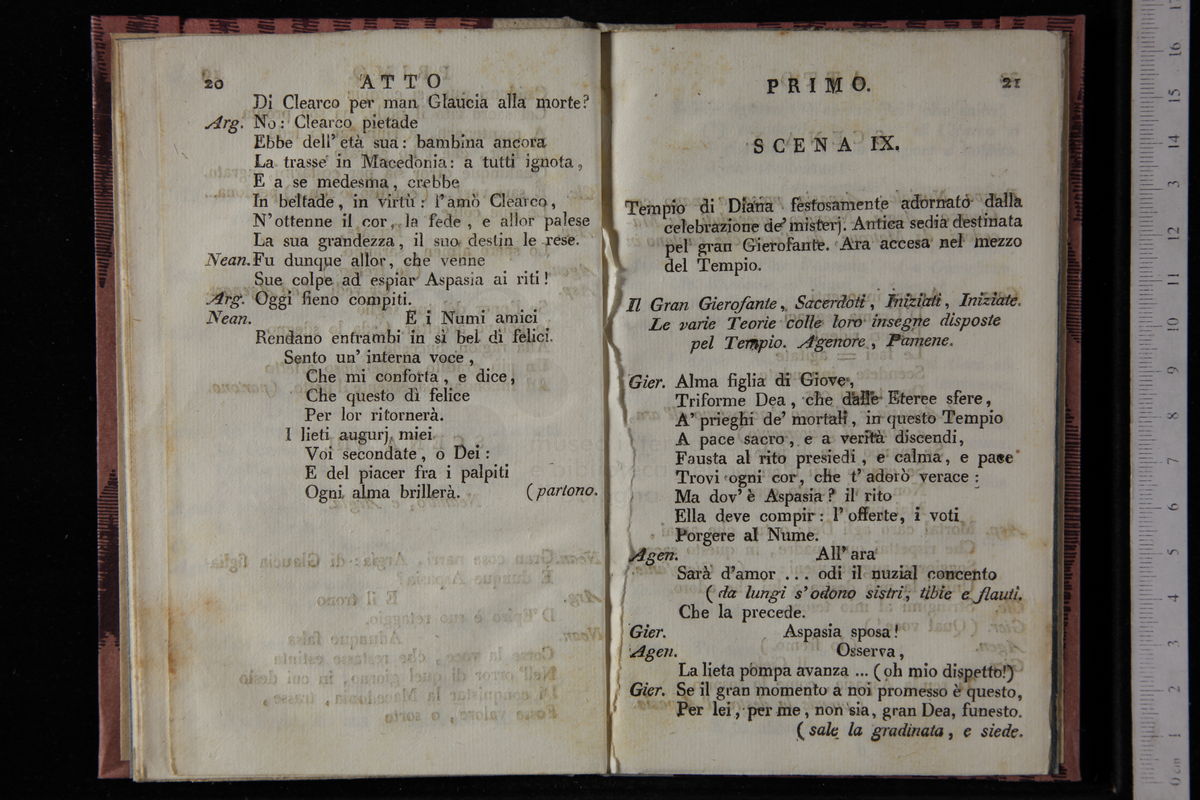 20 ATTO
Di Clearco per man Glaucia alla morte?
Arg. No: Clearco pietade
Ebbe dell' età sua: bambina ancora
La trasse in Macedonia: a tutti ignota,
E a se medesma, crebbe
In beltade, in virtù: l'amò Clearco,
N'ottenne il cor, la fede, e allor palese
La sua grandezza, il suo destin le rese.
Nean. Fu dunque allor, che venne
Sue colpe ad espiar Aspasia ai riti!
Arg. Oggi fieno compiti.
Nean. E i Numi amici
Rendano entrambi in sì bel dì felici.
Sento un' interna voce,
Che mi conforta, e dice,
Che questo dì felice
Per lor ritornerà.
I lieti augurj miei
Voi secondate, o Dei:
E del piacer fra i palpiti
Ogni alma brillerà. (partono.
PRIMO. 21
SCENA IX.
Tempio di Diana festosamente adornato dalla
celebrazione de' misterj. Antica sedia destinata
pel gran Gierofante. Ara accesa nel mezzo
del Tempio.
Il Gran Gierofante, Sacerdoti, Iniziati, Iniziate.
Le varie Teorie colle loro insegne disposte
pel Tempio. Agenore, Pamene.
Gier. Alma figlia di Giove,
Triforme Dea, che dalle Eteree sfere,
A' prieghi de' mortali, in questo Tempio
A pace sacro, e a verità discendi,
Fausta al rito presiedi, e calma, e pace
Trovi ogni cor, che t' adorò verace:
Ma dov' è Aspasia? il rito
Ella deve compir: l' offerte, i voti
Porgere al Nume.
Agen. All' ara
Sarà d'amor ... odi il nuzial concento
(da lungi s' odono sistri, tibie e flauti.
Che la precede.
Gier. Aspasia sposa!
Agen. Osserva,
La lieta pompa avanza ... (oh mio dispetto!)
Gier. Se il gran momento a noi promesso è questo,
Per lei, per me, non sia, gran Dea, funesto.
(sale la gradinata, e siede.